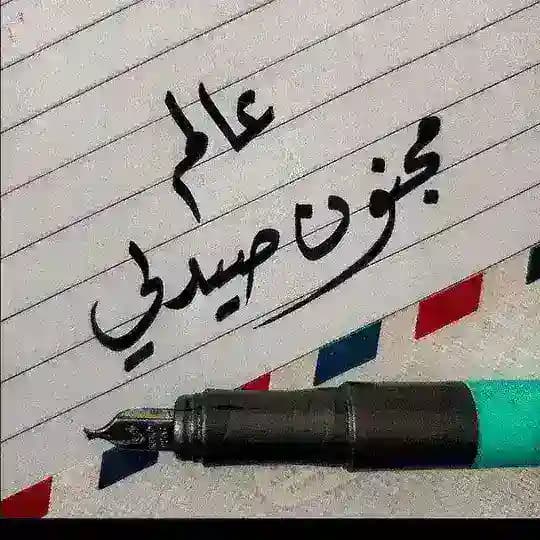 عالم
مجنون صيدلي